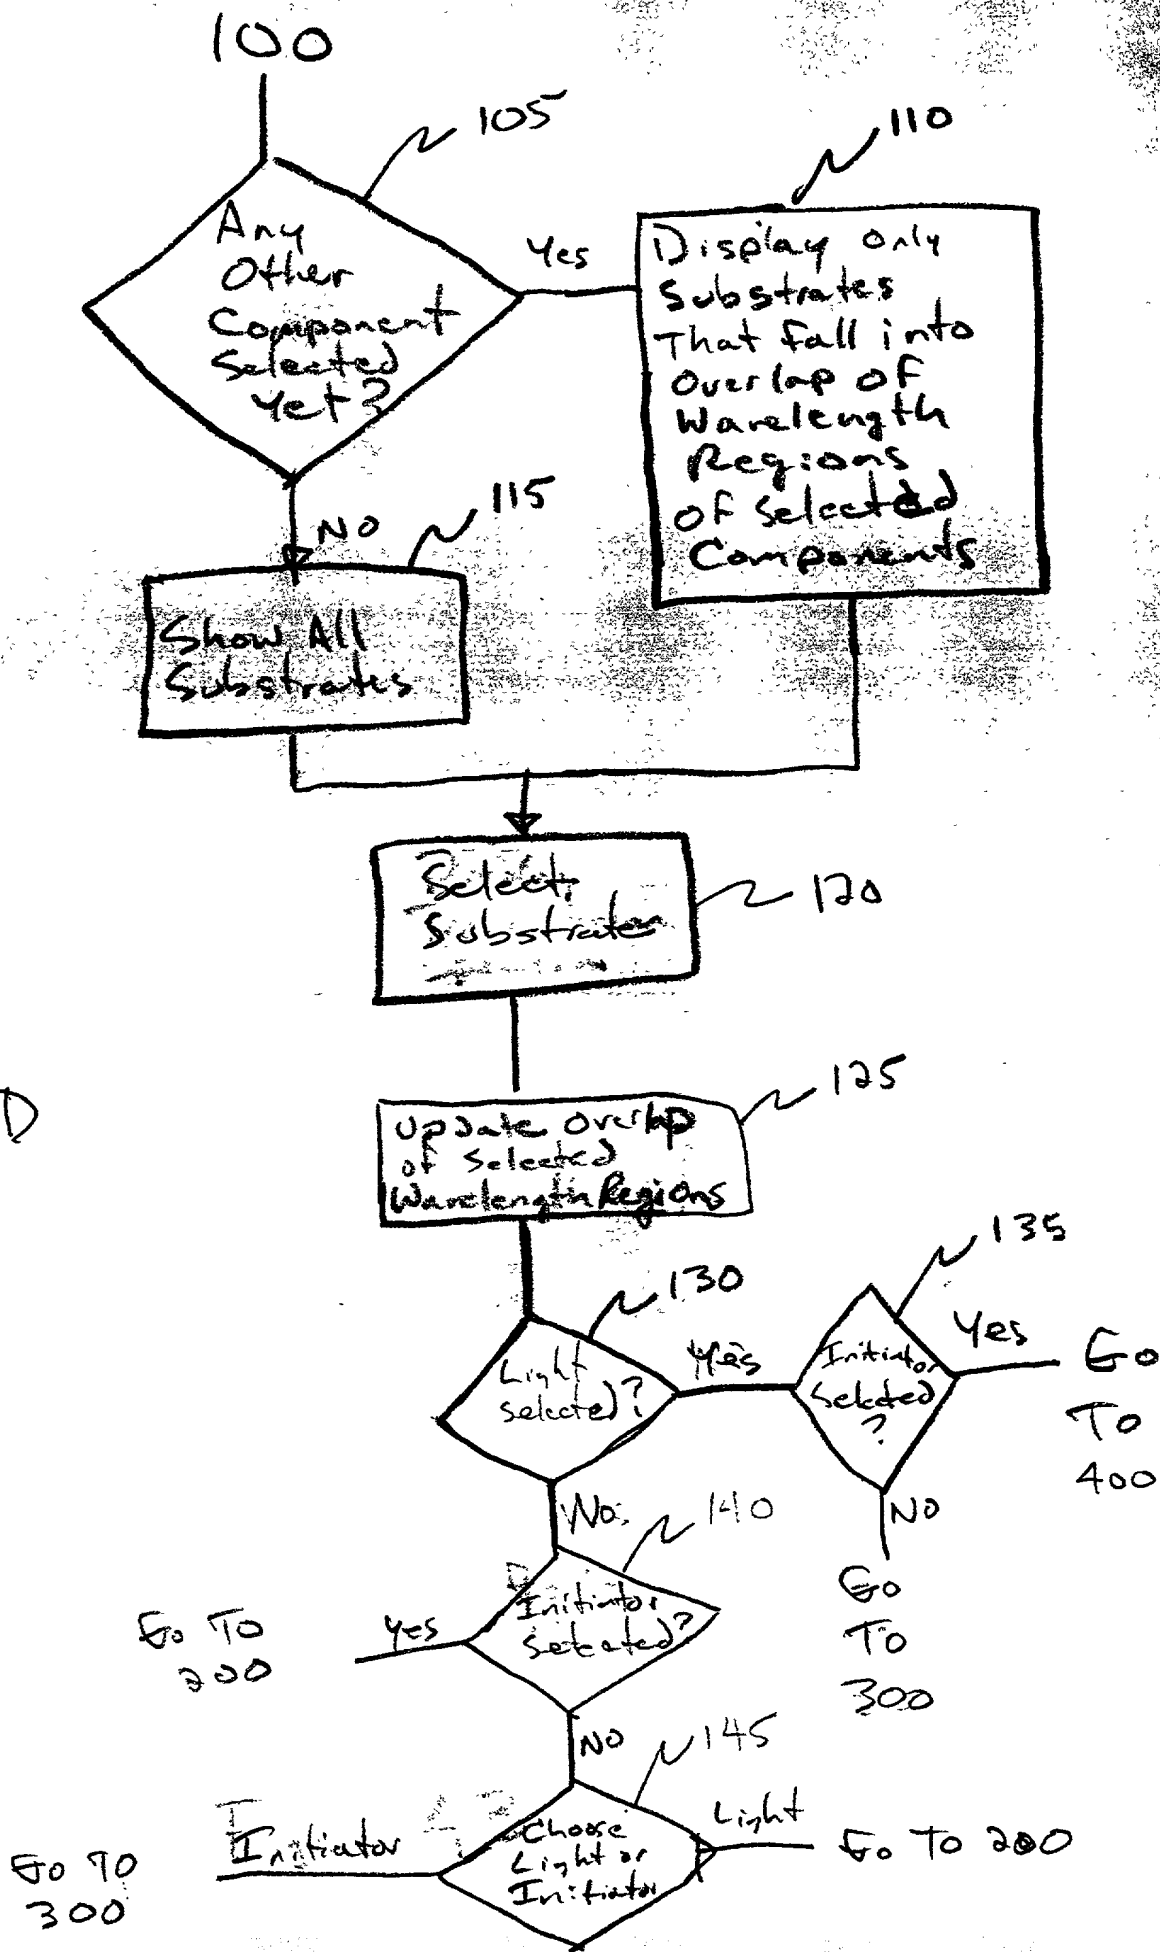 100
105
110
Any
Other
Component
Selected
Yet?
Yes
Display Only
Substrates
That fall into
Overlap of
Wavelength
Regions
of Selected
Components
NO
115
Show All
Substrates
Select
Substrates
120
D
125
Update Overlap
of Selected
Wavelength Regions
130
135
Light
Selected?
Yes
Initiator
Selected
?
Yes
Go
To
400
No
140
NO
Go
To
300
Initiator
Selected?
Yes
Go To
200
NO
145
Choose
Light or
Initiator
Initiator
Go TO
300
Light
Go To 200